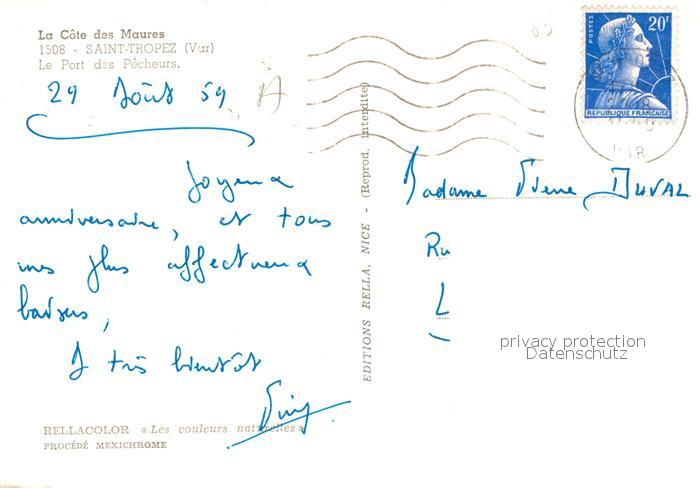 La Côte des Maures
1508 - SAINT-TROPEZ (Var)
Le Port des Pêcheurs.
29 Août 59
Joyeux
anniversaire, et tous
mes plus affectueux
baisers,
A très bientôt
RELLACOLOR « Les couleurs naturelles »
PROCÉDÉ MEXICHROME
EDITIONS RELLA, NICE - (Reprod. interdite)
POSTES 20F
REPUBLIQUE FRANÇAISE
VAR
Madame Pierre DUVAL
Ru
L
privacy protection
Datenschutz